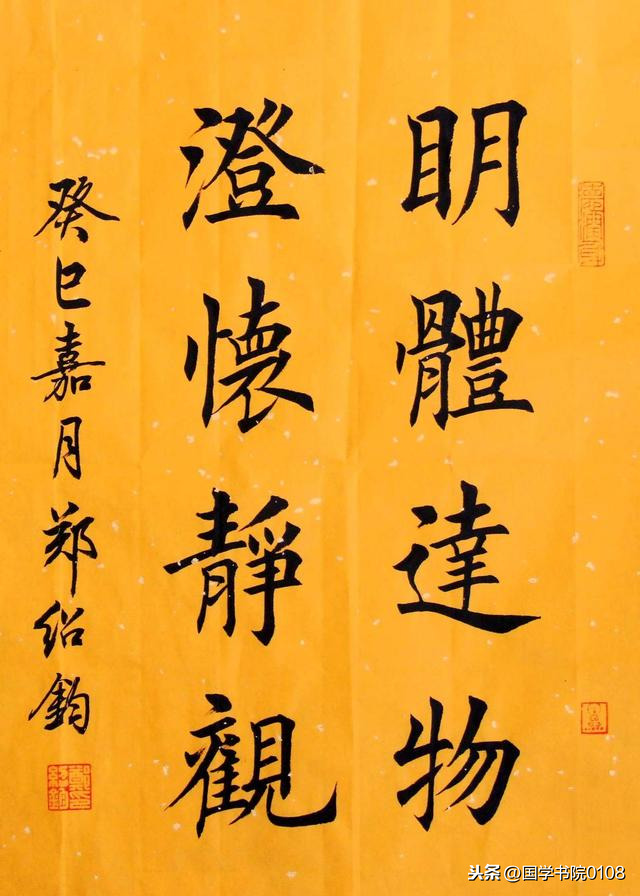 眀體達物
澄懷靜觀
癸巳嘉月郑绍鈞
头条 @国学书院0108